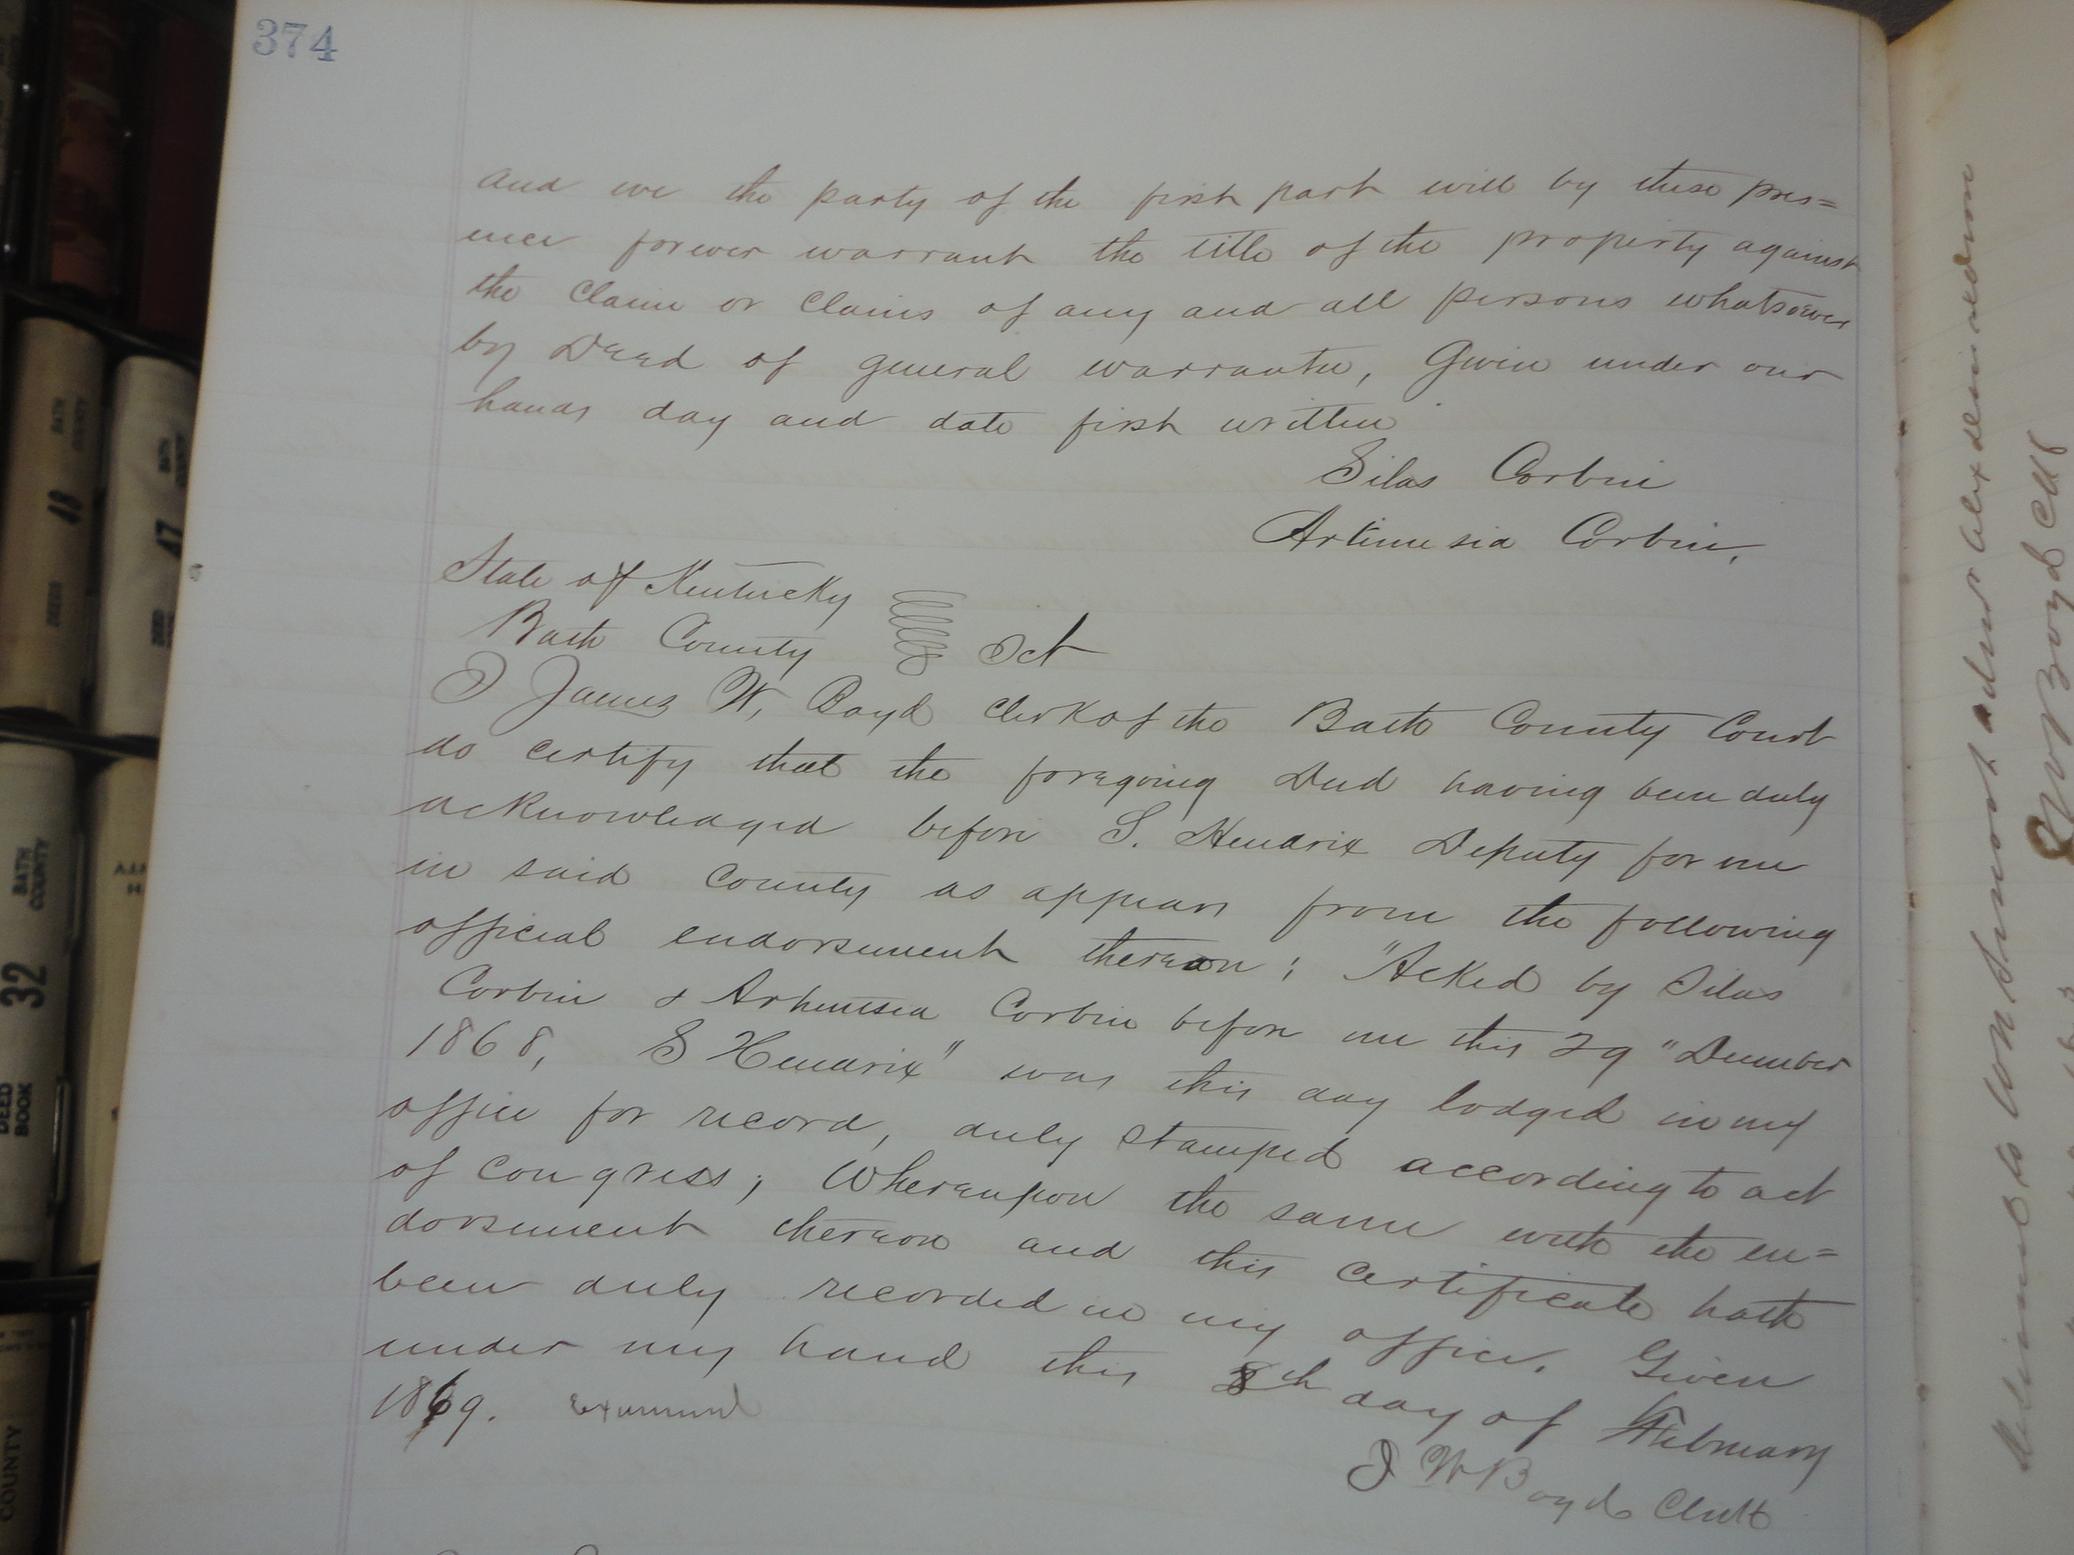 374
and we the party of the first part will by these pres=
ence forever warrant the title of the property against
the claim or claims of any and all persons whatsoever
by Deed of general warrantee, Given under our
hands day and date first written
Silas Corbin
Artimesia Corbin,
State of Kentucky
Bath County Sct
I James W, Boyd clerk of the Bath County Court
do certify that the foregoing Deed having been duly
acknowledged before S. Hendrix Deputy for me
in said County as appears from the following
official endorsement thereon; "Acked by Silas
Corbin & Artemesia Corbin before me this 29" December
1868, S Hendrix" was this day lodged in my
office for record, duly stamped according to act
of Congress; Whereupon the same with the en=
dorsement thereon and this certificate hath
been duly recorded in my office. Given
under my hand this 8th day of February
1869. Examined
J W Boyd Clerk
BATH COUNTY
48
DEEDS
BATH COUNTY
47
BATH COUNTY
32
DEED BOOK
COUNTY